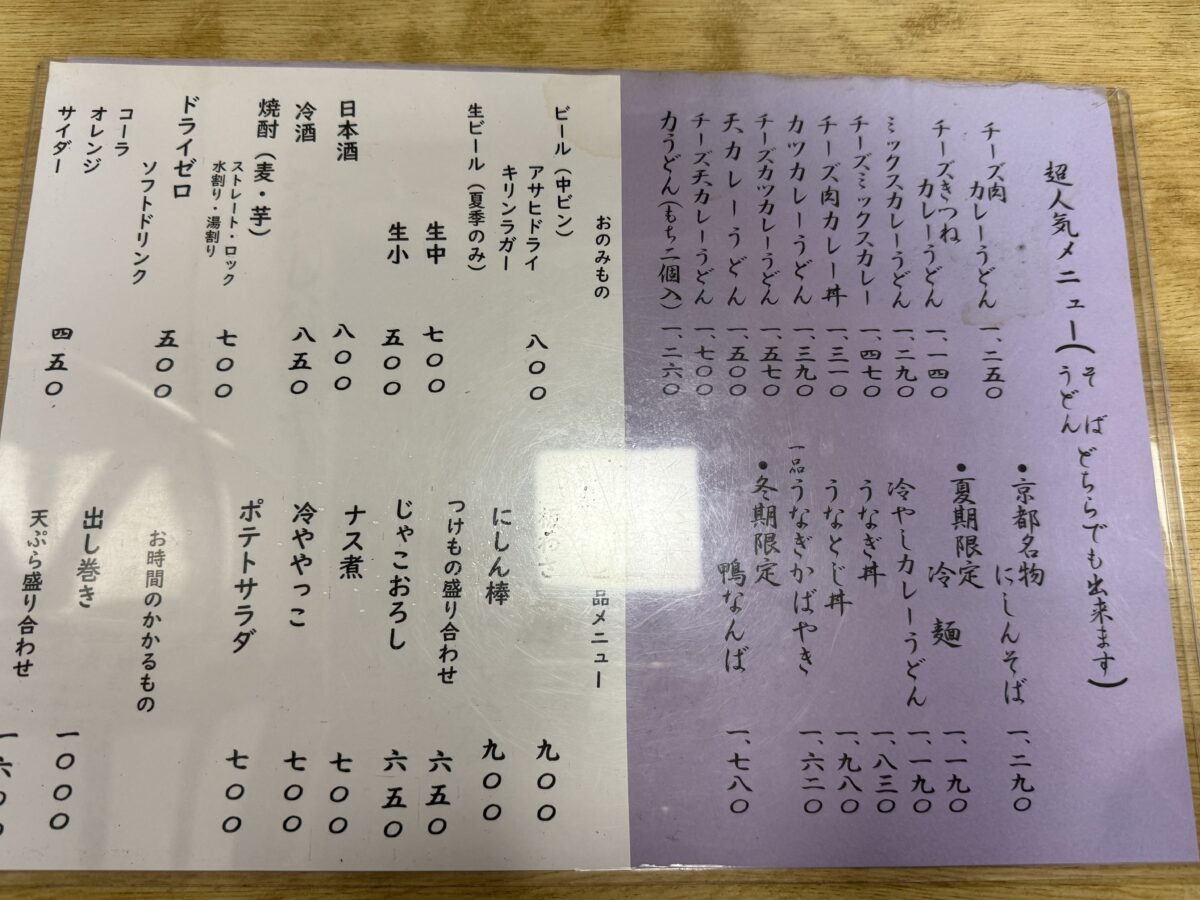 超人気メニュー(そば うどん どちらでも出来ます)
チーズ肉
カレーうどん 一、二五〇
チーズきつね
カレーうどん 一、一四〇
ミックスカレーうどん 一、二九〇
チーズミックスカレー 一、四七〇
チーズ肉カレー丼 一、三一〇
カツカレーうどん 一、三九〇
チーズカツカレーうどん 一、五七〇
天カレーうどん 一、五〇〇
チーズ天カレーうどん 一、七〇〇
力うどん(もち二個入) 一、二六〇
•京都名物
にしんそば 一、二九〇
•夏期限定
冷麺 一、一九〇
冷やしカレーうどん 一、一九〇
うなぎ丼 一、八三〇
うなとじ丼 一、九八〇
一品うなぎかばやき 一、六二〇
•冬期限定
鴨なんば 一、七八〇
おのみもの
ビール(中ビン) 八〇〇
アサヒドライ
キリンラガー
生ビール(夏季のみ)
生中 七〇〇
生小 五〇〇
日本酒 八〇〇
冷酒 八五〇
焼酎(麦・芋) 七〇〇
ストレート・ロック
水割り・湯割り
ドライゼロ 五〇〇
ソフトドリンク
コーラ
オレンジ
サイダー 四五〇
品メニュー
板わさ 九〇〇
にしん棒 九〇〇
つけもの盛り合わせ 六五〇
じゃこおろし 六五〇
ナス煮 七〇〇
冷ややっこ 七〇〇
ポテトサラダ 七〇〇
お時間のかかるもの
出し巻き 一〇〇〇
天ぷら盛り合わせ 一六〇〇